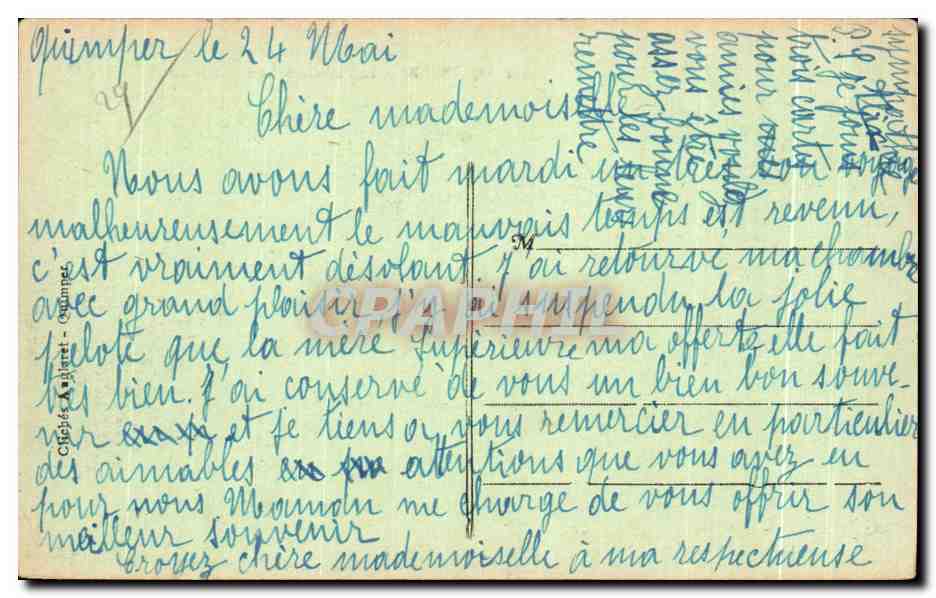 Quimper le 24 Mai
29
Chère mademoiselle
Nous avons fait mardi un très bon voyage
malheureusement le mauvais temps est revenu,
M
c'est vraiment désolant. J'ai retourvé ma chambre
avec grand plaisir j'y ai supendu la jolie
pelote que la mère Supérieure ma offerte, elle fait
très bien. J'ai conservé de vous un bien bon souve-
nir et je tiens a vous remercier en particulier
des aimables attentions que vous avez eu
pour nous Maman me charge de vous offrir son
meilleur souvenir
Croyez chère mademoiselle à ma respectueuse
sympathie
je
trois cartes
pour
amies voulez
vous être
assez bonne
pour les leur
remettre
Clichés Anglaret - Quimper
CPAPHIL